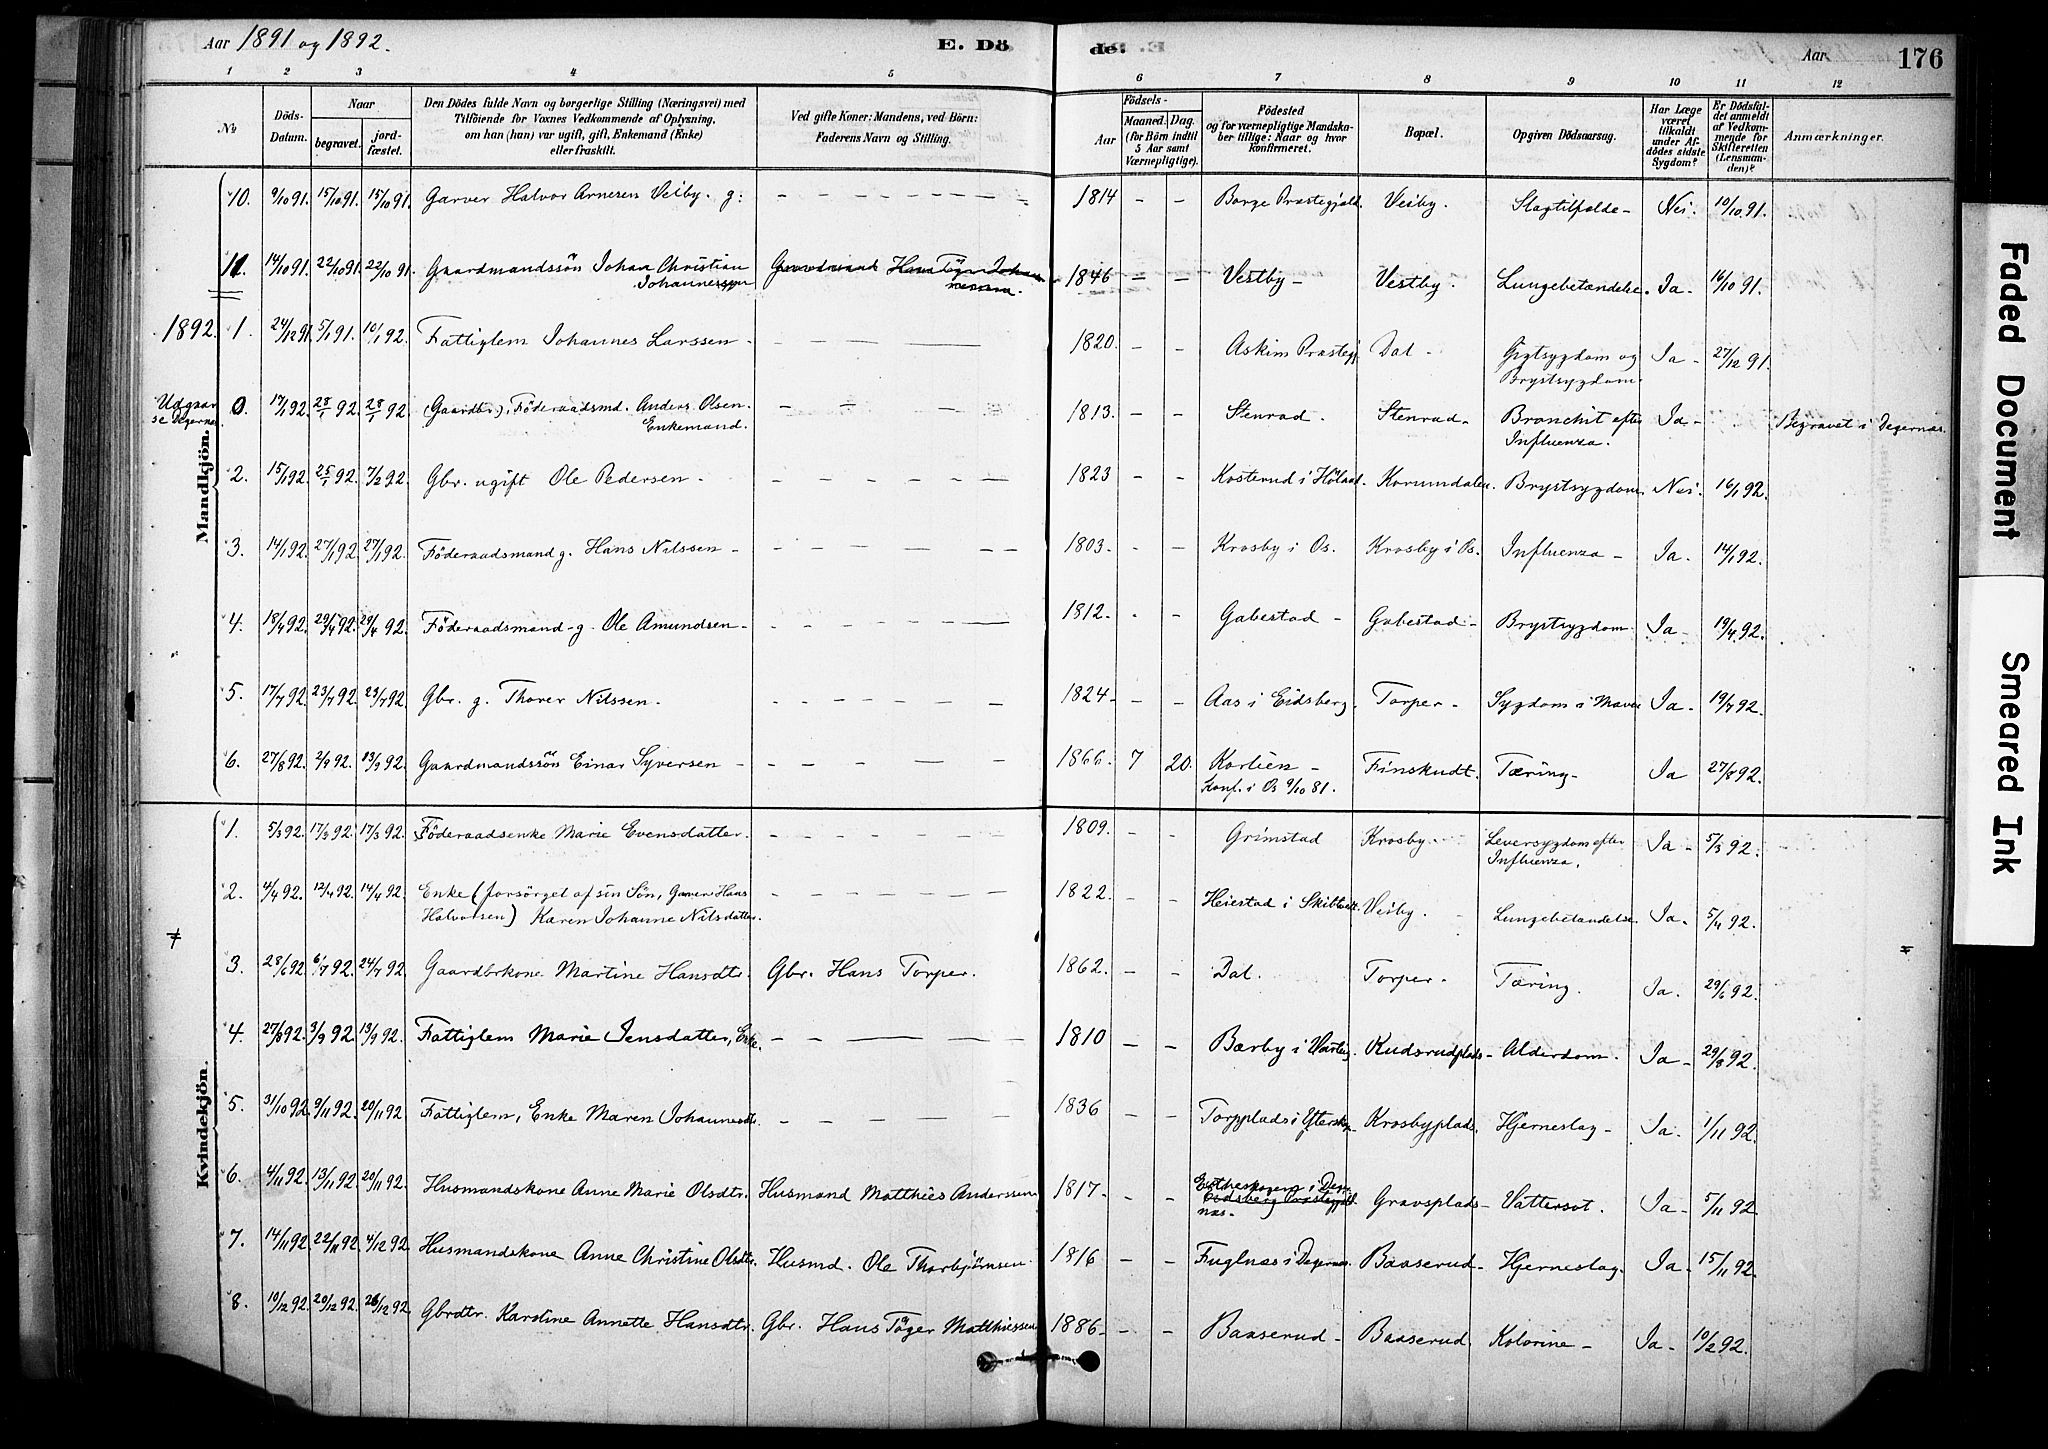 Aar 1891 og 1892. E. Dö de. Aar 176
1 2 3 4 5 6 7 8 9 10 11 12
No Döds-Datum. Naar begravet. jordfæstet. Den Dödes fulde Navn og borgerlige Stilling (Næringsvei) med Tilföiende for Voxnes Vedkommende af Oplysning, om han (hun) var ugift, gift, Enkemand (Enke) eller fraskilt. Ved gifte Koner: Mandens, ved Börn: Faderens Navn og Stilling. Födsels- Aar Maaned. Dag. (for Börn indtil 5 Aar samt Værnepligtige). Födested og for værnepligtige Mandskaber tillige: Naar og hvor konfirmeret. Bopæl. Opgiven Dödsaarsag. Har Læge været tilkaldt under Afdödes sidste Sygdom? Er Dödsfaldet anmeldt af Vedkommende for Skifteretten (Lensmanden)? Anmærkninger.
Mandkjön.
10. 9/10 91. 15/10 91. 15/10 91. Garver Halvor Arnesen Veiby. g: 1814 - - Borge Præstegjæld. Veiby. Slagtilfælde - Nei. 10/10 91.
11. 14/10 91. 22/10 91. 22/10 91. Gaardmandssön Johan Christian Johannessen 1846 - - Vestby - Vestby. Lungebetændelse. Ja - 16/10 91.
1892. 1. 24/12 91. 5/1 91. 10/1 92. Fattiglem Johannes Larssen - 1820. - - Askim Præstegj. Dal - Gigtsygdom og Brystsygdom. Ja - 27/12 91.
0. 17/1 92. 28/1 92. 28/1 92 (Gaardbr.), Föderaadsmd. Anders Olsen. Enkemand. 1813. - - Stenrød. Stenrød - Bronchit efter Influenza. Ja - Begravet i Degernæs.
2. 15/1 92. 25/1 92. 7/2 92. Gbr. ugift Ole Pedersen - 1823 - - Kosterud i Höland. Korumdalen. Brystsygdom Nei. 16/1 92.
3. 14/1 92. 27/1 92. 27/1 92. Föderaadsmand g. Hans Nilssen - 1803. - - Krosby i Os. Krosby i Os. Influenza - Ja - 14/1 92.
4. 18/4 92. 29/4 92. 29/4 92. Föderaadsmand - g. Ole Amundsen - 1812. - - Gabestad - Gabestad - Brystsygdom. Ja - 19/4 92.
5. 17/7 92. 23/7 92. 23/7 92 Gbr. g. Thorer Nilssen. 1824 - - - Aas i Eidsberg. Torper - Sygdom i Maven Ja - 19/7 92.
6. 27/8 92. 2/9 92. 13/9 92. Gaardmandssön Einar Syversen - 1866 7 20. Kortien - Konf. i Os 9/10 81. Finskudt. Tæring - Ja 27/8 92.
Kvindekjön.
1. 5/3 92. 17/3 92. 17/3 92. Föderaadsenke Marie Evensdatter. 1809. - - Grimstad Krosby. Leversygdom efter Influenza. Ja - 5/3 92.
2. 4/4 92. 12/4 92. 14/4 92. Enke (forsörget af sin Sön, Garver Hans Halvorsen) Karen Johanne Nilsdatter. 1822. - - Heiestad i Skibtvedt. Veiby. - Lungebetændelse Ja. 5/4 92.
3. 28/6 92. 6/7 92. 24/7 92. Gaardbrkone Martine Hansdtr. Gbr. Hans Torper. 1862. - - Dal. Torper - Tæring. Ja. 29/6 92.
4. 27/8 92. 3/9 92. 13/9 92. Fattiglem Marie Jensdatter, Enke. 1810 - - Bærby i Varteig. Kudsrudplads - Alderdom. Ja - 29/8 92.
5. 31/10 92. 9/11 92. 20/11 92 Fattiglem, Enke Maren Johannesdtr. 1836 - - Torpplads i Ytterskog - Krosbyplads. Hjerneslag - Ja. 1/11 92.
6. 4/11 92. 13/11 92. 20/11 92. Husmandskone Anne Marie Olsdtr. Husmand Matthies Anderssen 1817. - - i Degernæs - Gravsplads - Vattersot. Ja - 5/11 92.
7. 14/11 92. 22/11 92. 4/12 92. Husmandskone Anne Christine Olsdtr. Husmd. Ole Thorbjörnsen. 1816 - - Fuglnæs i Degernæs. Baaserud - Hjerneslag. Ja - 15/11 92.
8. 10/12 92. 20/12 92. 26/12 92. Gbrdtr. Karoline Annette Hansdtr. Gbr. Hans Töger Matthiessen 1886 - - - Baaserud - Baaserud. Kolorine - Ja - 10/2 92.
Faded Document
Smeared Ink